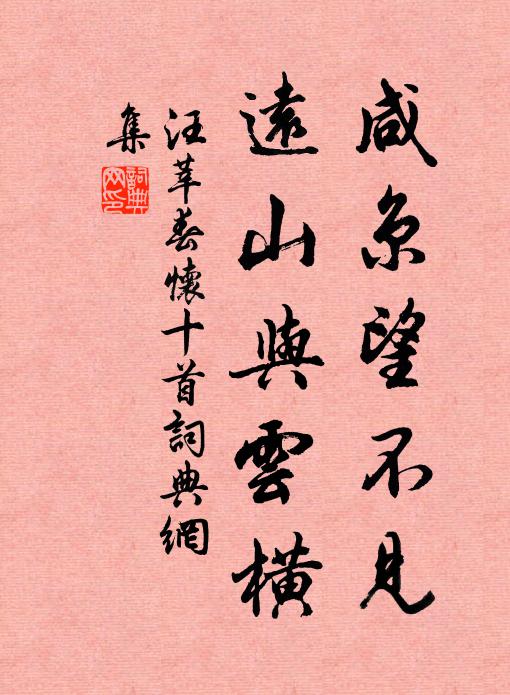 咸京望不見
遠山與雲橫
汪莘春懷十首詞典網
集
詞典网印